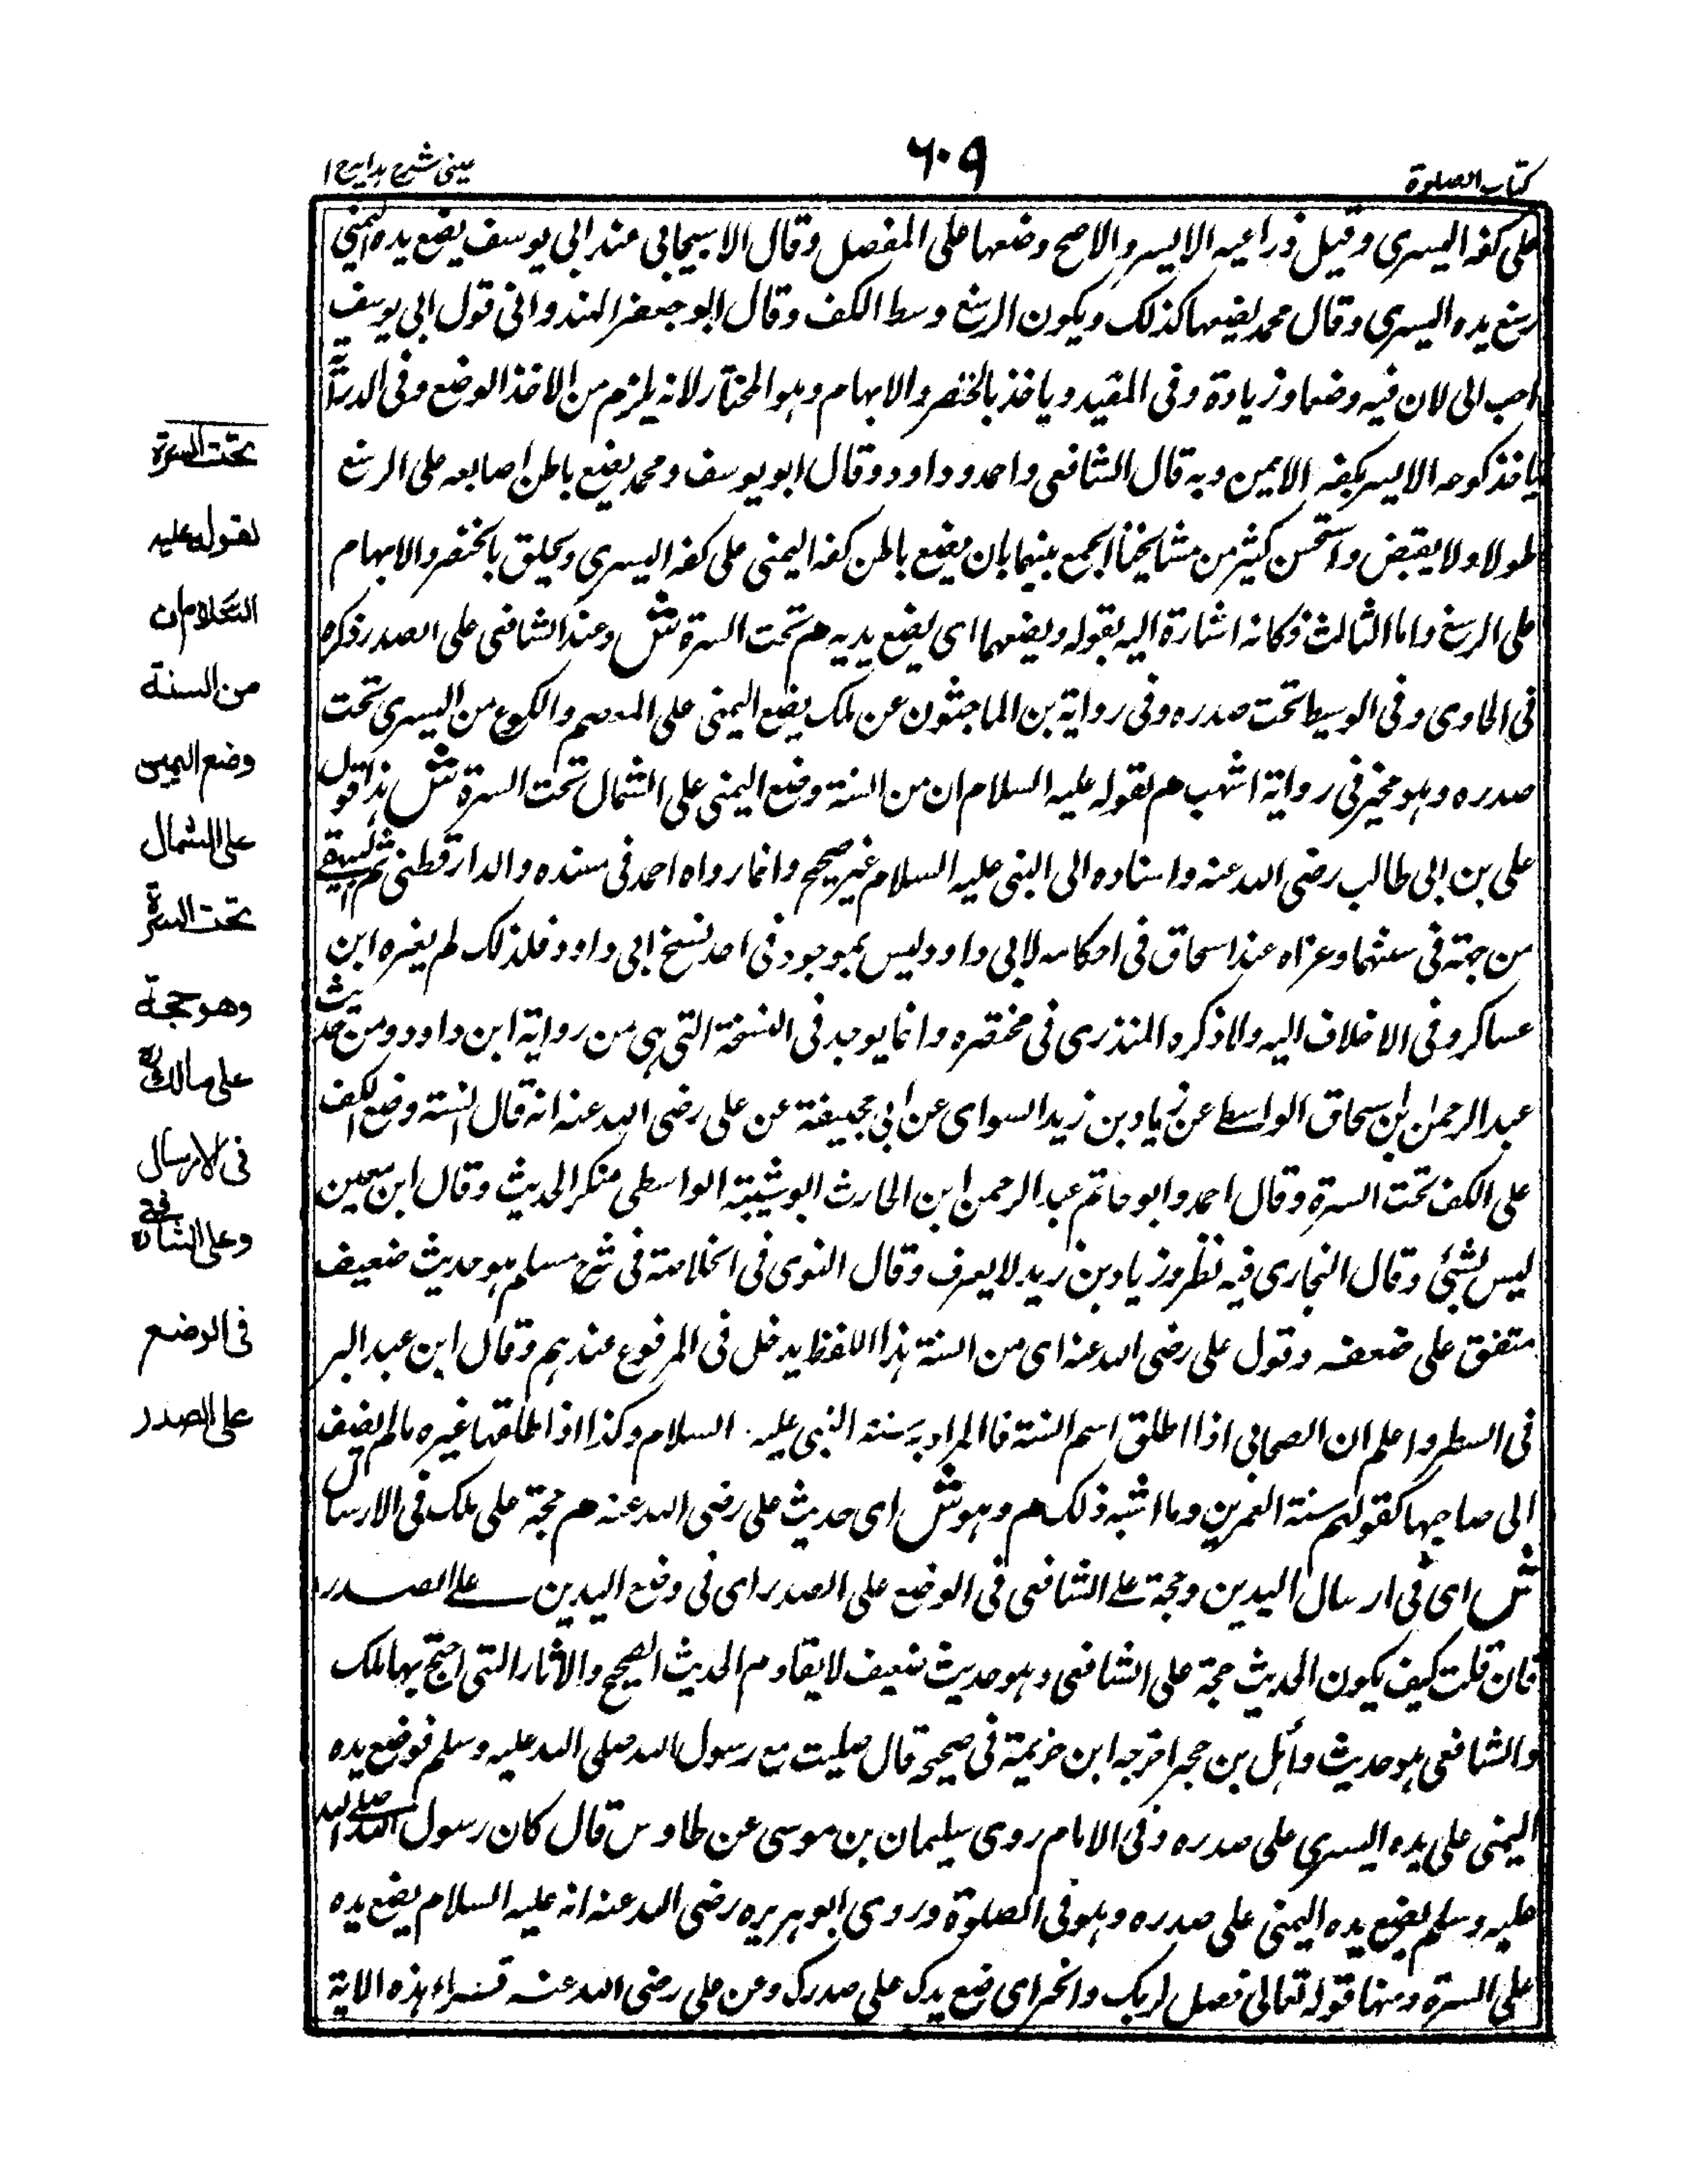 كتاب الصلوة
٦٠٩
عينى شرح هدايه ج ا
على كفه اليسرى وقيل ذراعيه الايسر والاصح وضعها على المفصل وقال الاسبيجابى عند ابى يوسف يضع يده اليمنى
رسغ يده اليسرى وقال محمد يضعها كذلك ويكون الرسغ وسط الكف وقال ابو جعفر الهندوانى قول ابى يوسف
احب الى لان فيه وضعا وزيادة وفى المفيد وياخذ بالخنصر والابهام وهو المختار لانه يلزم من الاخذ الوضع وفى الدراية
ياخذ كوعه الايسر بكفه الايمن وبه قال الشافعى واحمد وداود وقال ابو يوسف ومحمد يضع باطن اصابعه على الرسغ
طولا ولا يقبض واستحسن كثير من مشايخنا الجمع بينهما بان يضع باطن كفه اليمنى على كفه اليسرى ويحلق بالخنصر والابهام
على الرسغ واما الثالث فكانه اشارة اليه بقوله ويضعهما اى يضع يديه هم تحت السرة ش وعند الشافعى على الصدر ذكره
فى الحاوى وفى الوسيط تحت صدره وفى رواية بن الماجشون عن ملك يضع اليمنى على المعصم والكوع من اليسرى تحت
صدره وهو مخير فى رواية اشهب هم لقوله عليه السلام ان من السنة وضع اليمنى على الشمال تحت السرة ش هذا قول
على بن ابى طالب رضى الله عنه واسناده الى النبى عليه السلام غير صحيح وانما رواه احمد فى مسنده والدارقطنى ثم البيهقى
من جهته فى سننهما وعزاه عند اسحاق فى احكامه لابى داود وليس بموجود فى احد نسخ ابى داود فلذلك لم يعزه ابن
عساكر وفى الاخلاف اليه ولا ذكره المنذرى فى مختصره وانما يوجد فى النسخة التى هى من رواية ابن داود ومن حديث
عبد الرحمن بن اسحاق الواسطے عن زياد بن زيد السواى عن ابى جحيفة عن على رضى الله عنه انه قال السنة وضع الكف
على الكف تحت السرة وقال احمد وابو حاتم عبد الرحمن ابن الحارث ابو شيبة الواسطى منكر الحديث وقال ابن معين
ليس بشئ وقال البخارى فيه نظر وزياد بن زيد لا يعرف وقال النوى فى الخلاصة فى شرح مسلم هو حديث ضعيف
متفق على ضعفه وقول على رضى الله عنه اى من السنة هذا اللفظ يدخل فى المرفوع عندهم وقال ابن عبد البر
فى السطر واعلم ان الصحابى اذا اطلق اسم السنة فالمراد به سنة النبى عليه السلام وكذا اذا اطلقها غيره مالم يضف
الى صاحبها كقولهم سنة العمرين وما اشبه ذلك هم وهو ش اى حديث على رضى الله عنه هم حجة على ملك فى الارسال
ش اى فى ارسال اليدين وحجة علے الشافعى فى الوضع على الصدر اى فى وضع اليدين علے الصدر
فان قلت كيف يكون الحديث حجة على الشافعى وهو حديث ضعيف لا يقاوم الحديث الصحيح والاثار التى احتج بها ملك
والشافعى هو حديث وائل بن حجر اخرجه ابن خزيمة فى صحيحه قال صليت مع رسول الله صلى الله عليه وسلم فوضع يده
اليمنى على يده اليسرى على صدره وفى الامام روى سليمان بن موسى عن طاوس قال كان رسول الله صلے الله
عليه وسلم يضع يده اليمنى على صدره وهو فى الصلوة وروى ابو هريره رضى الله عنه انه عليه السلام يضع يده
على السرة ومنها قوله تعالى فصل لربك وانحر اى ضع يدك على صدرك وعن على رضى الله عنه قسراء هذه الاية
تحت السرة
لقوله عليه
السلام ان
من السنة
وضع اليمين
على الشمال
تحت السرة
وهو حجة
على مالك رح
فى الارسال
وعلى الشافعى
فى الوضع
على الصدر